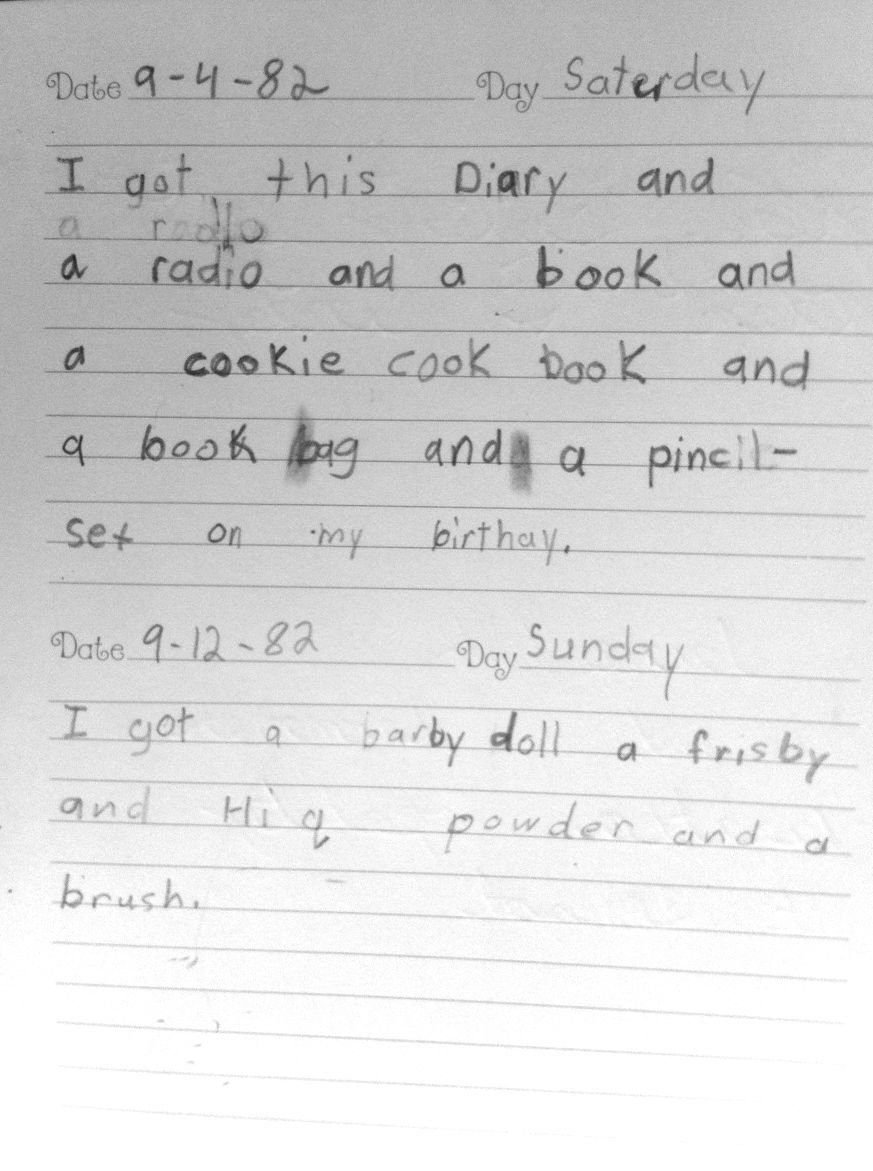 Date 9-4-82 Day Saterday
I got this Diary and
a radio
a radio and a book and
a cookie cook book and
a book bag and a pincil-
set on my birthay.
Date 9-12-82 Day Sunday
I got a barby doll a frisby
and Hi q powder and a
brush.